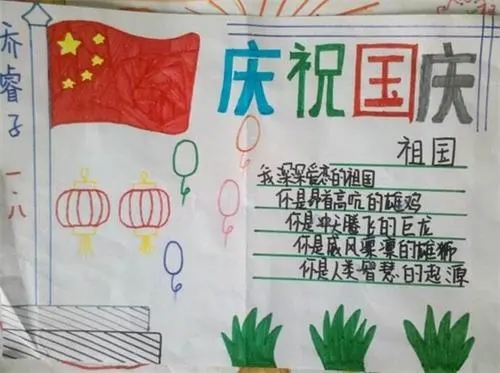 乔睿子
一八
庆祝国庆
祖国
我深深爱恋的祖国
你是昂首高吭的雄鸡
你是冲天腾飞的巨龙
你是威风凛凛的雄狮
你是人类智慧的起源